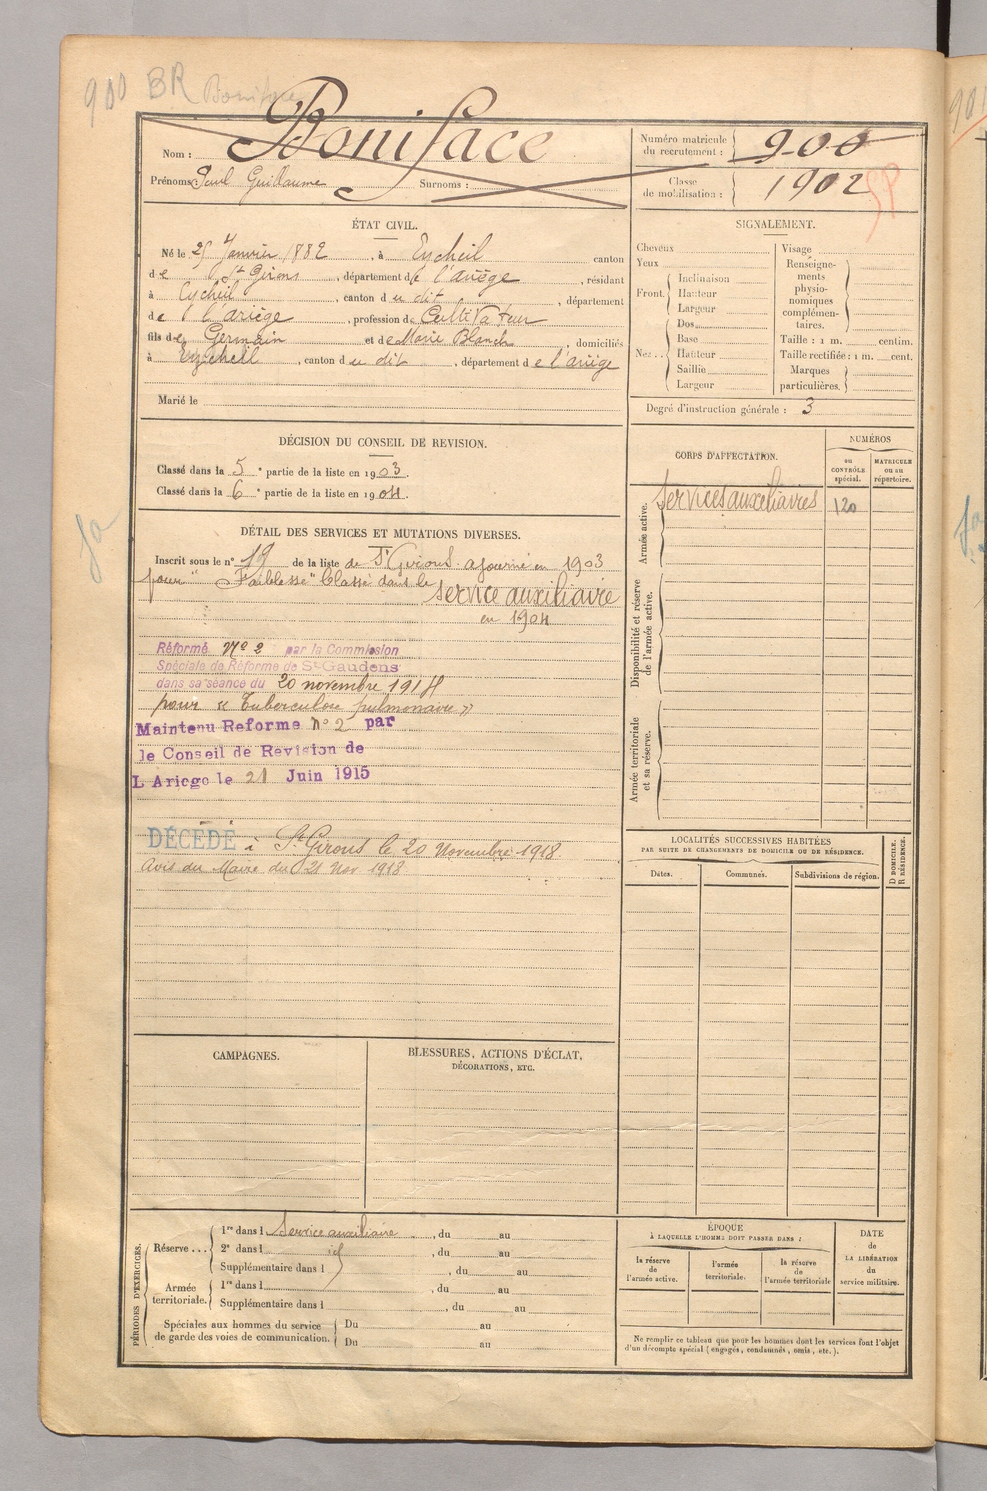 900 BR Boniface
Nom : Boniface
Prénoms : Paul Guillaume Surnoms :
Numéro matricule du recrutement : 900
Classe de mobilisation : 1902
SP
ÉTAT CIVIL.
Né le 25 Janvier 1882, à Eycheil canton
de St Girons, département de l'ariège, résidant
à Eycheil, canton du dit, département
de l'ariège, profession de Cultivateur
fils de Germain et de Marie Blanch, domiciliés
à Eycheil, canton du dit, département de l'ariège
Marié le
SIGNALEMENT.
Cheveux
Yeux
Front. Inclinaison
Hauteur
Largeur
Nez .. Dos
Base
Hauteur
Saillie
Largeur
Visage
Renseignements physionomiques complémentaires.
Taille : 1 m. centim.
Taille rectifiée : 1 m. cent.
Marques particulières.
Degré d'instruction générale : 3
DÉCISION DU CONSEIL DE REVISION.
Classé dans la 5e partie de la liste en 1903.
Classé dans la 6e partie de la liste en 1904.
CORPS D'AFFECTATION.
NUMÉROS
au CONTRÔLE spécial.
MATRICULE ou au répertoire.
Armée active.
services auxiliaires 120
Disponibilité et réserve de l'armée active.
Armée territoriale et sa réserve.
DÉTAIL DES SERVICES ET MUTATIONS DIVERSES.
Inscrit sous le n° 19 de la liste de St Girons ajourné en 1903
pour " Faiblesse " Classé dans le service auxiliaire
en 1904
Réformé No 2 par la Commission
Spéciale de Réforme de St-Gaudens
dans sa séance du 20 novembre 1914
pour « Tuberculose pulmonaire »
Maintenu Reforme n° 2 par
le Conseil de Revision de
L Ariege le 21 Juin 1915
DÉCÉDÉ à St Girons le 20 Novembre 1918
Avis du Maire du 21 Nov 1918
LOCALITÉS SUCCESSIVES HABITÉES
PAR SUITE DE CHANGEMENTS DE DOMICILE OU DE RÉSIDENCE.
Dates. Communes. Subdivisions de région.
D DOMICILE.
R RÉSIDENCE.
CAMPAGNES.
BLESSURES, ACTIONS D'ÉCLAT,
DÉCORATIONS, ETC.
PÉRIODES D'EXERCICES.
Réserve ... 1re dans l Service auxiliaire, du au
2e dans l id, du au
Supplémentaire dans l, du au
Armée territoriale. 1re dans l, du au
Supplémentaire dans l, du au
Spéciales aux hommes du service de garde des voies de communication. Du au
Du au
ÉPOQUE
À LAQUELLE L'HOMME DOIT PASSER DANS :
la réserve de l'armée active.
l'armée territoriale.
la réserve de l'armée territoriale
DATE de LA LIBÉRATION du service militaire.
Ne remplir ce tableau que pour les hommes dont les services font l'objet
d'un décompte spécial (engagés, condamnés, omis, etc.).